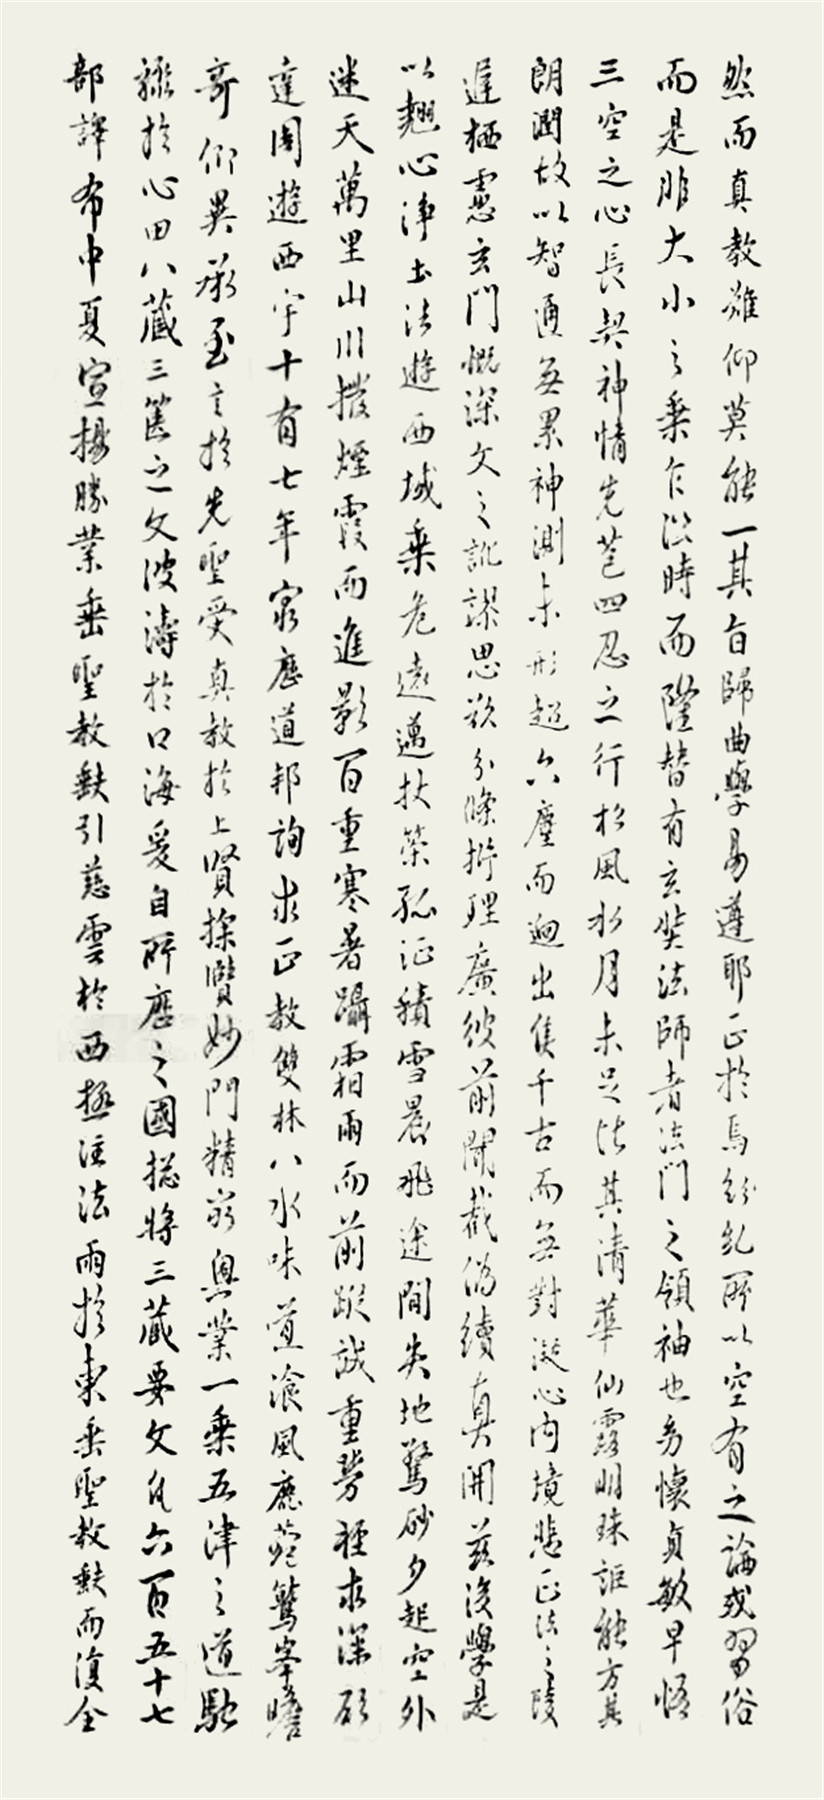 然而真教難仰莫能一其旨歸曲學易遵耶正於焉紛糺所以空有之論或習俗
而是非大小之乘乍沿時而隆替有玄奘法師者法門之領袖也幼懷貞敏早悟
三空之心長契神情先苞四忍之行松風水月未足比其清華仙露明珠詎能方其
朗潤故以智通無累神測未形超六塵而迥出隻千古而無對凝心內境悲正法之陵
遲栖慮玄門慨深文之訛謬思欲分條析理廣彼前聞截偽續真開茲後學是
以翹心淨土法遊西域乘危遠邁杖策孤征積雪晨飛途間失地驚砂夕起空外
迷天萬里山川撥煙霞而進影百重寒暑躡霜雨而前蹤誠重勞輕求深願
達周遊西宇十有七年窮歷道邦詢求正教雙林八水味道飡風鹿菀鷲峯瞻
奇仰異承至言於先聖受真教於上賢探賾妙門精窮奧業一乘五律之道馳
驟於心田八藏三篋之文波濤於口海爰自所歷之國摠將三藏要文凡六百五十七
部譯布中夏宣揚勝業垂聖教缺引慈雲於西極注法雨於東垂聖教缺而復全